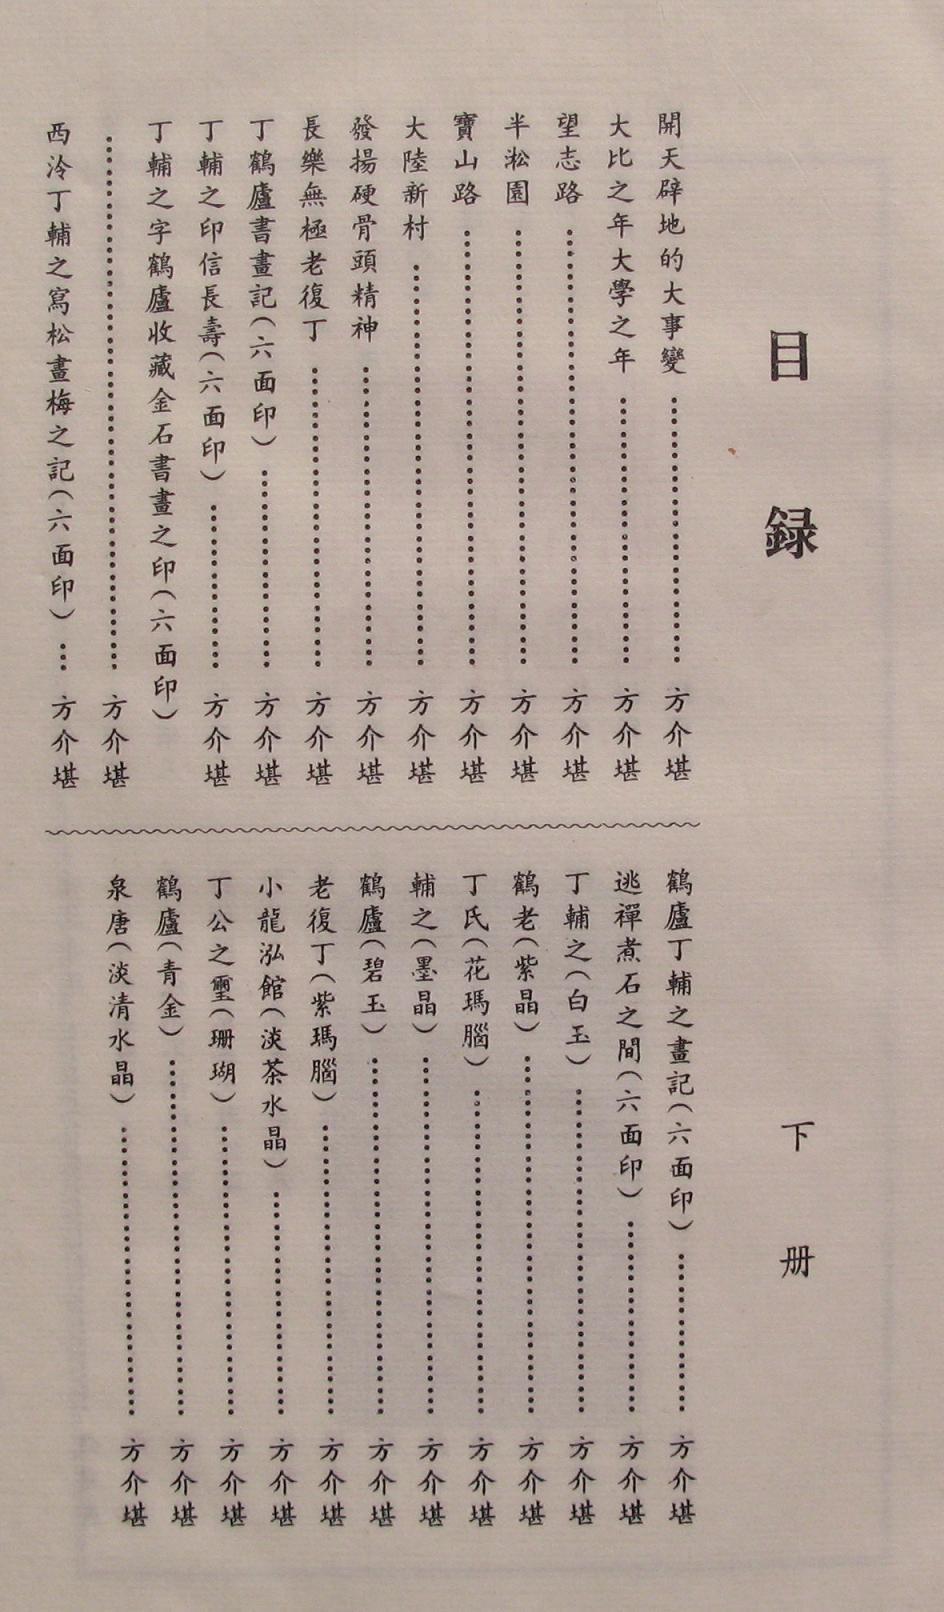 目錄 下册
開天辟地的大事變……方介堪
大比之年大學之年……方介堪
望志路……方介堪
半淞園……方介堪
寶山路……方介堪
大陸新村……方介堪
發揚硬骨頭精神……方介堪
長樂無極老復丁……方介堪
丁鶴廬書畫記(六面印)……方介堪
丁輔之印信長壽(六面印)……方介堪
丁輔之字鶴廬收藏金石書畫之印(六面印)
……方介堪
西泠丁輔之寫松畫梅之記(六面印)…方介堪
鶴廬丁輔之畫記(六面印)……方介堪
逃禪煮石之間(六面印)……方介堪
丁輔之(白玉)……方介堪
鶴老(紫晶)……方介堪
丁氏(花瑪腦)……方介堪
輔之(墨晶)……方介堪
鶴廬(碧玉)……方介堪
老復丁(紫瑪腦)……方介堪
小龍泓館(淡茶水晶)……方介堪
丁公之璽(珊瑚)……方介堪
鶴廬(青金)……方介堪
泉唐(淡清水晶)……方介堪